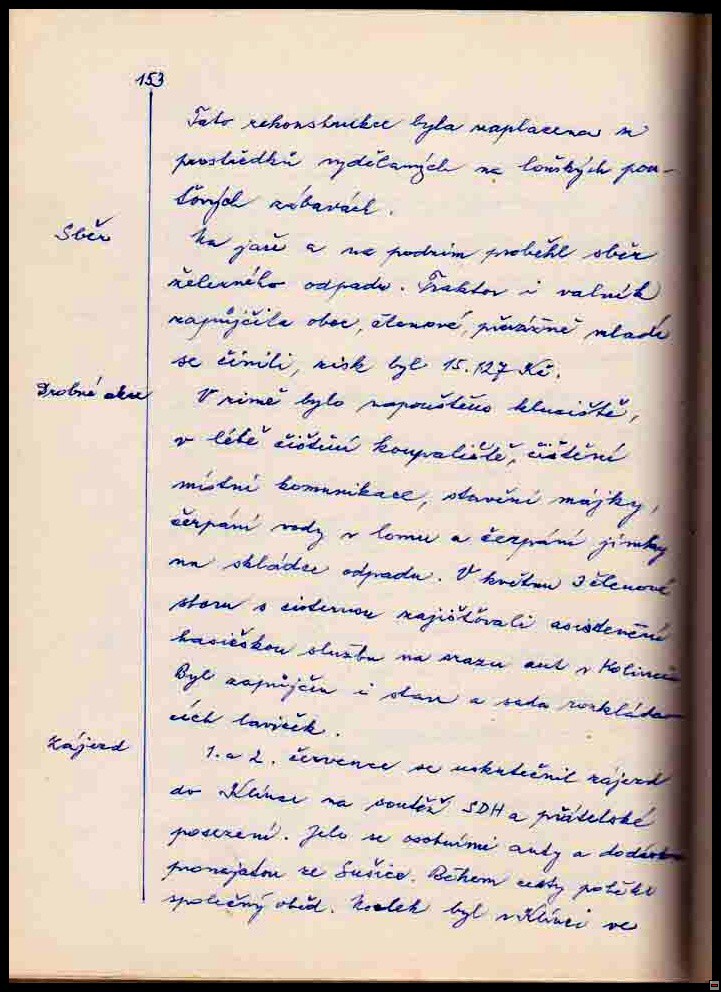 153
Tato rekonstrukce byla zaplacena z
prostředků vydělaných na loňských pou-
ťových zábavách.
Sběr
Na jaře a na podzim proběhl sběr
železného odpadu. Traktor i valník
zapůjčila obec, členové, převážně mladí
se činili, zisk byl 15.127 Kč.
Drobné akce
V zimě bylo napouštěno kluziště,
v létě čištění koupaliště, čištění
místní komunikace, stavění májky,
čerpání vody v lomu a čerpání jímky
na skládce odpadu. V květnu 3 členové
sboru s cisternou zajišťovali asistenční
hasičskou službu na srazu aut v Kolinci
Byl zapůjčen i stan a sada rozkláda-
cích laviček.
Zájezd
1. a 2. července se uskutečnil zájezd
do Klínce na soutěž SDH a přátelské
posezení. Jelo se osobními auty a dodávkou
pronajatou ze Sušice. Během cesty proběhl
společný oběd. Nocleh byl v Klínci ve